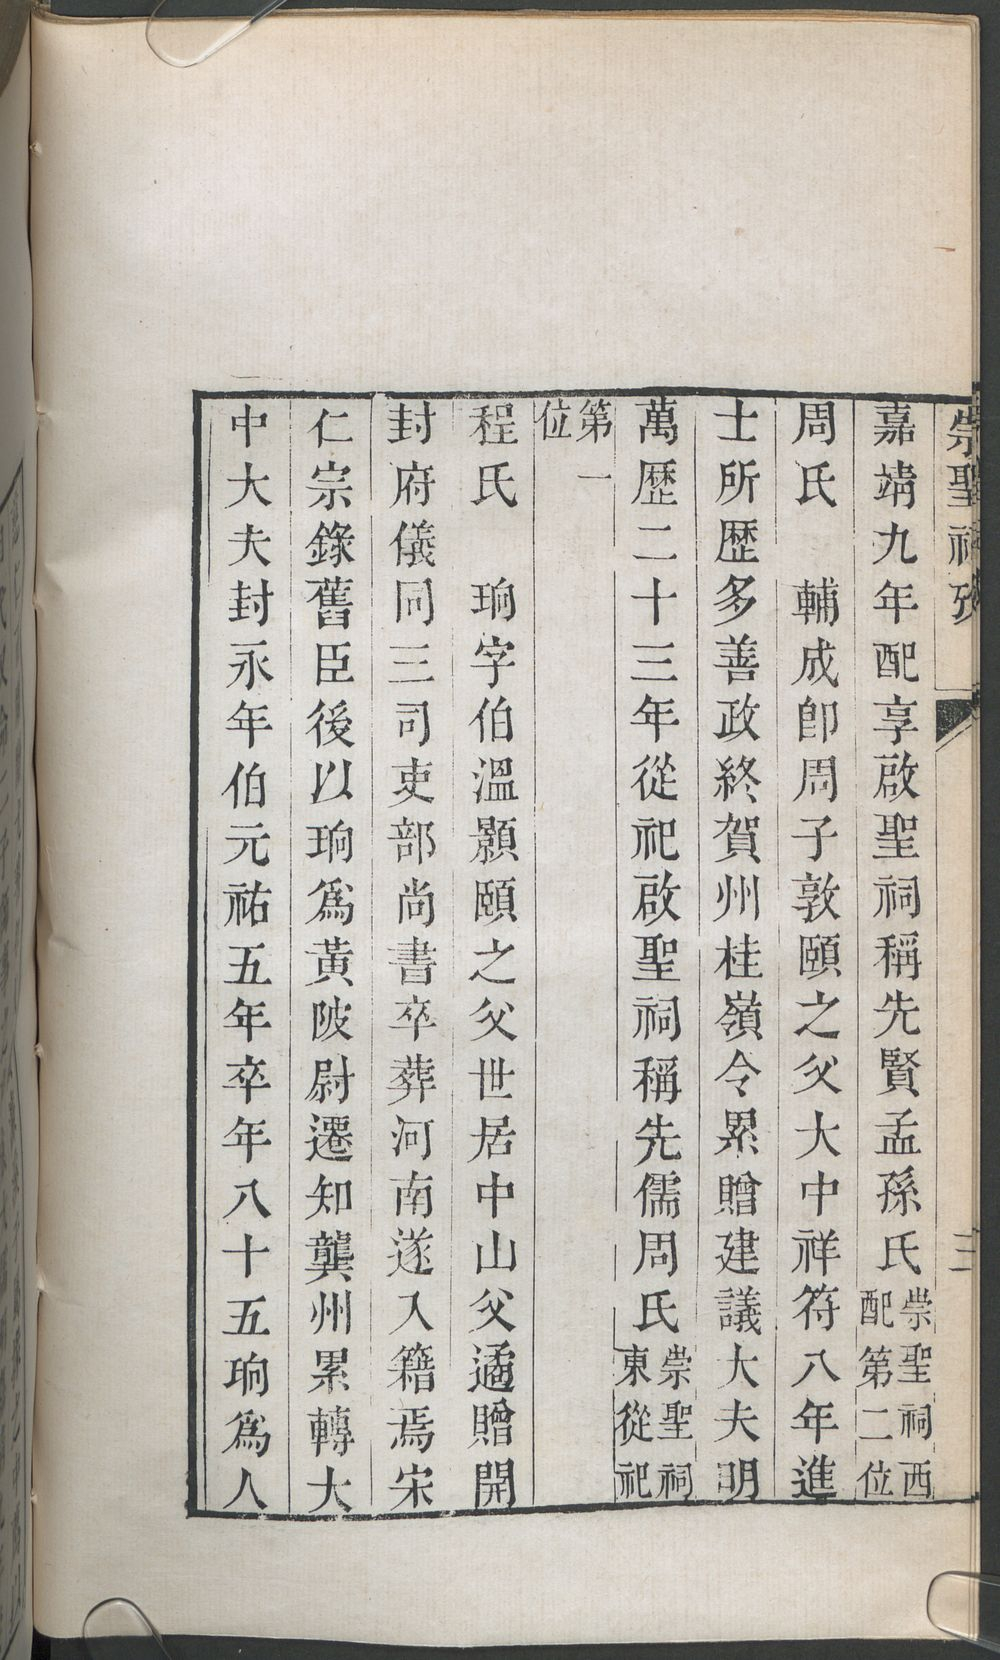 崇聖祠攷
三
嘉靖九年配享啟聖祠稱先賢孟孫氏崇聖祠西配第二位
周氏 輔成卽周子敦頤之父大中祥符八年進
士所歷多善政終賀州桂嶺令累贈建議大夫明
萬歷二十三年從祀啟聖祠稱先儒周氏崇聖祠東從祀
第一位
程氏 珦字伯溫顥頤之父世居中山父遹贈開
封府儀同三司吏部尚書卒葬河南遂入籍焉宋
仁宗錄舊臣後以珦爲黃陂尉遷知龔州累轉大
中大夫封永年伯元祐五年卒年八十五珦爲人